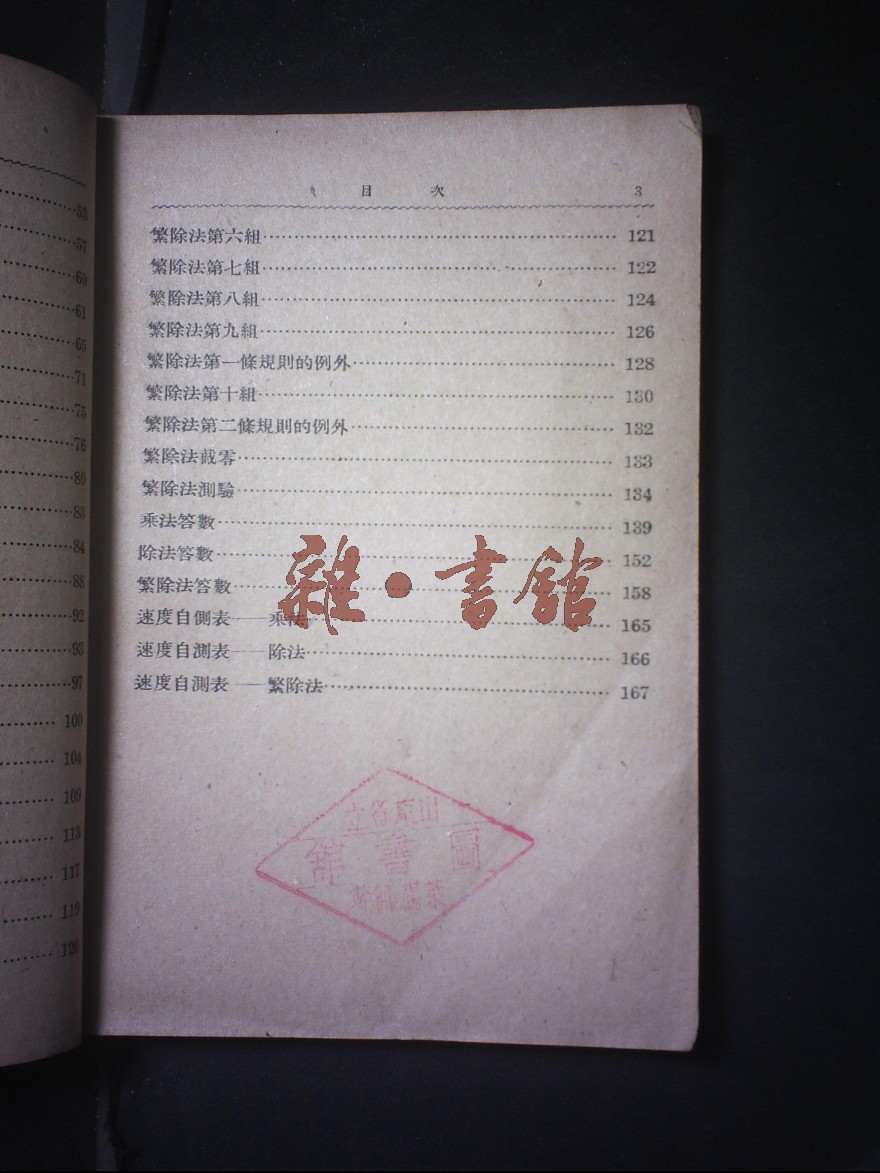 53
57
60
61
65
71
75
76
80
83
84
88
92
93
97
100
104
109
113
117
119
120
目 次 3
繁除法第六組 121
繁除法第七組 122
繁除法第八組 124
繁除法第九組 126
繁除法第一條規則的例外 128
繁除法第十組 130
繁除法第二條規則的例外 132
繁除法截零 133
繁除法測驗 134
乘法答數 139
除法答數 152
繁除法答數 158
速度自測表——乘法 165
速度自測表——除法 166
速度自測表——繁除法 167
雜·書館
山東省立
圖書館
萊陽師範